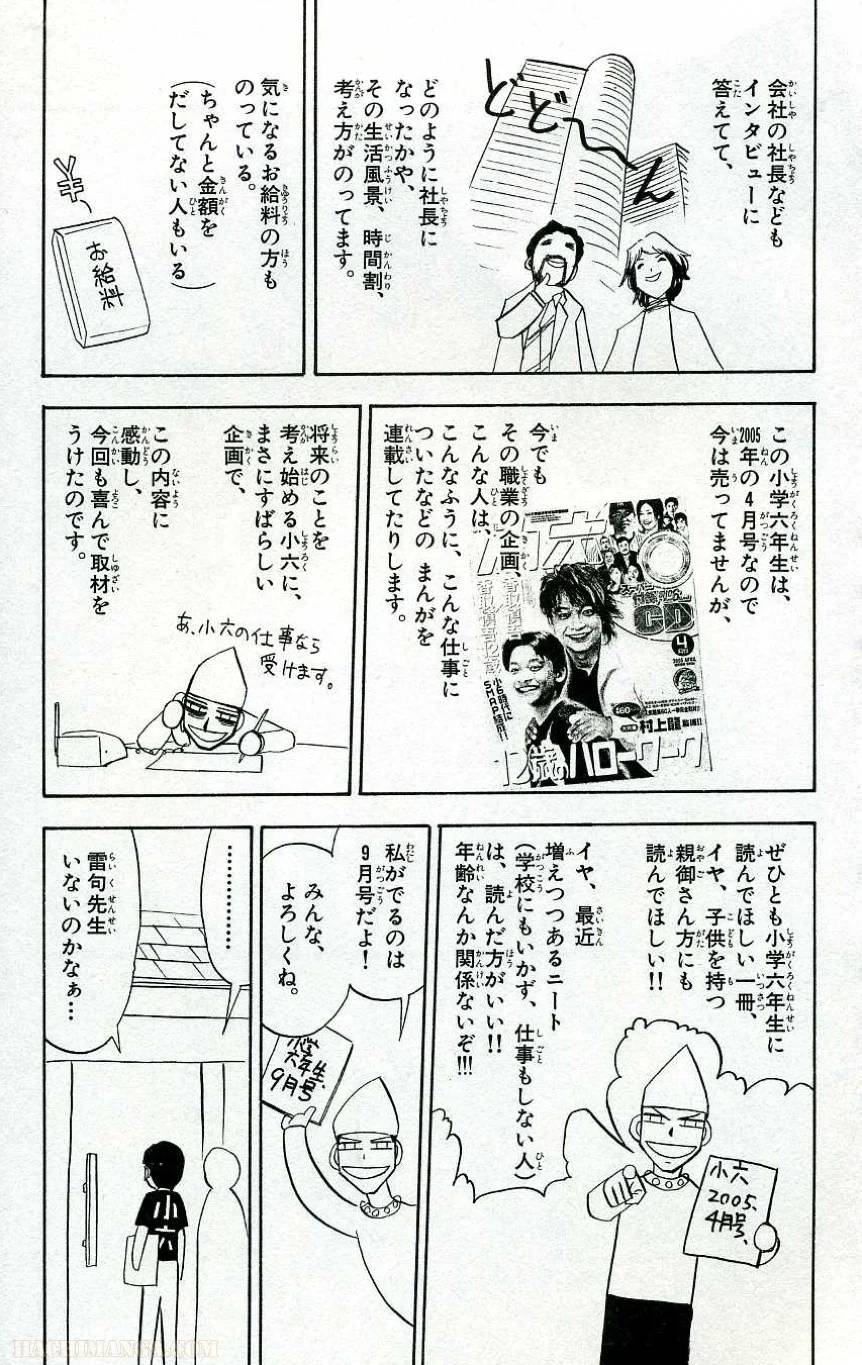 会社の社長なども
インタビューに
答えてて、
どど〜ん
どのように社長に
なったかや、
その生活風景、時間割、
考え方がのってます。
気になるお給料の方も
のっている。
(ちゃんと金額を
だしてない人もいる)
¥
お給料
この小学六年生は、
2005年の4月号なので
今は売ってませんが、
小六
CD
4
2005 APRIL
香取慎吾12歳
小6時代に
SMAP結成!!
村上龍
12歳のハローワーク
今でも
その職業の企画、
こんな人は、
こんなふうに、こんな仕事に
ついたなどの まんがを
連載してたりします。
将来のことを
考え始める小六に、
まさにすばらしい
企画で、
この内容に
感動し、
今回も喜んで取材を
うけたのです。
あ、小六の仕事なら
受けます。
ぜひとも小学六年生に
読んでほしい一冊、
イヤ、子供を持つ
親御さん方にも
読んでほしい!!
イヤ、最近
増えつつあるニート
(学校にもいかず、仕事もしない人)
は、読んだ方がいい!!
年齢なんか関係ないぞ!!!
小六
2005.
4月号、
私がでるのは
9月号だよ!
みんな、
よろしくね。
小学
六年生、
9月号
…………
雷句先生
いないのかなぁ…
小六
HACHIMANGA.COM